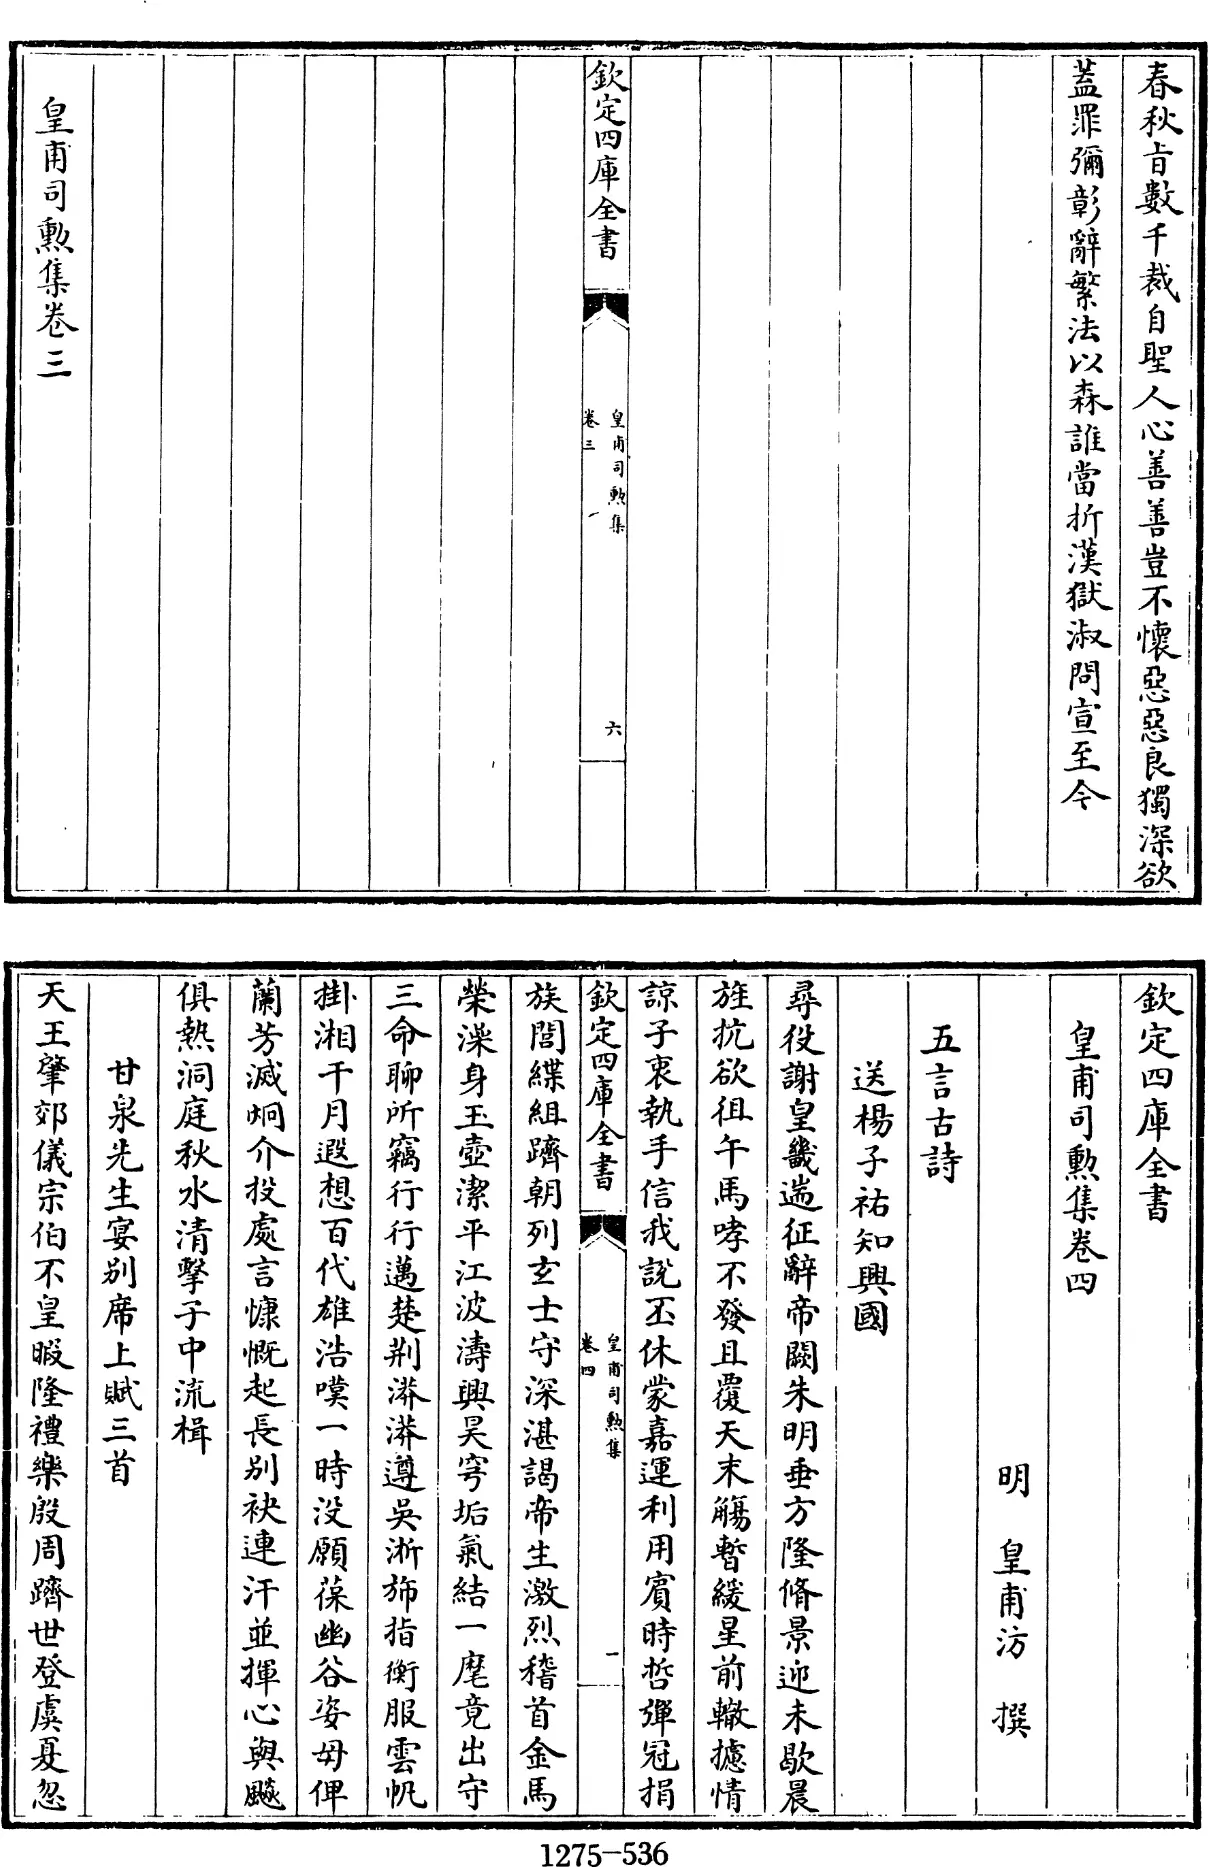 春秋旨數千裁自聖人心善善豈不懷惡惡良獨深欲
蓋罪彌彰辭繁法以森誰當折漢獄淑問宣至今
欽定四庫全書
皇甫司勲集
卷三
六
皇甫司勲集卷三
欽定四庫全書
皇甫司勲集卷四
明 皇甫汸 撰
五言古詩
送楊子祐知興國
尋役謝皇畿遄征辭帝闕朱明垂方隆脩景迎未歇晨
旌抗欲徂午馬哮不發且覆天末觴暫緩星前轍攄情
諒子衷執手信我説丕休蒙嘉運利用賓時哲彈冠捐
欽定四庫全書
皇甫司勲集
卷四
一
族閭緤組躋朝列玄士守深湛謁帝生激烈稽首金馬
榮澡身玉壺潔平江波濤興昊穹垢氣結一麾竟出守
三命聊所竊行行邁楚荆漭漭遵吳淅斾指衡服雲帆
掛湘干月遐想百代雄浩嘆一時没願葆幽谷姿毋俾
蘭芳滅炯介投處言慷慨起長別袂連汗並揮心與飈
俱熱洞庭秋水清擊子中流楫
甘泉先生宴别席上賦三首
天王肇郊儀宗伯不皇暇隆禮樂殷周躋世登虞夏忽
1275-536